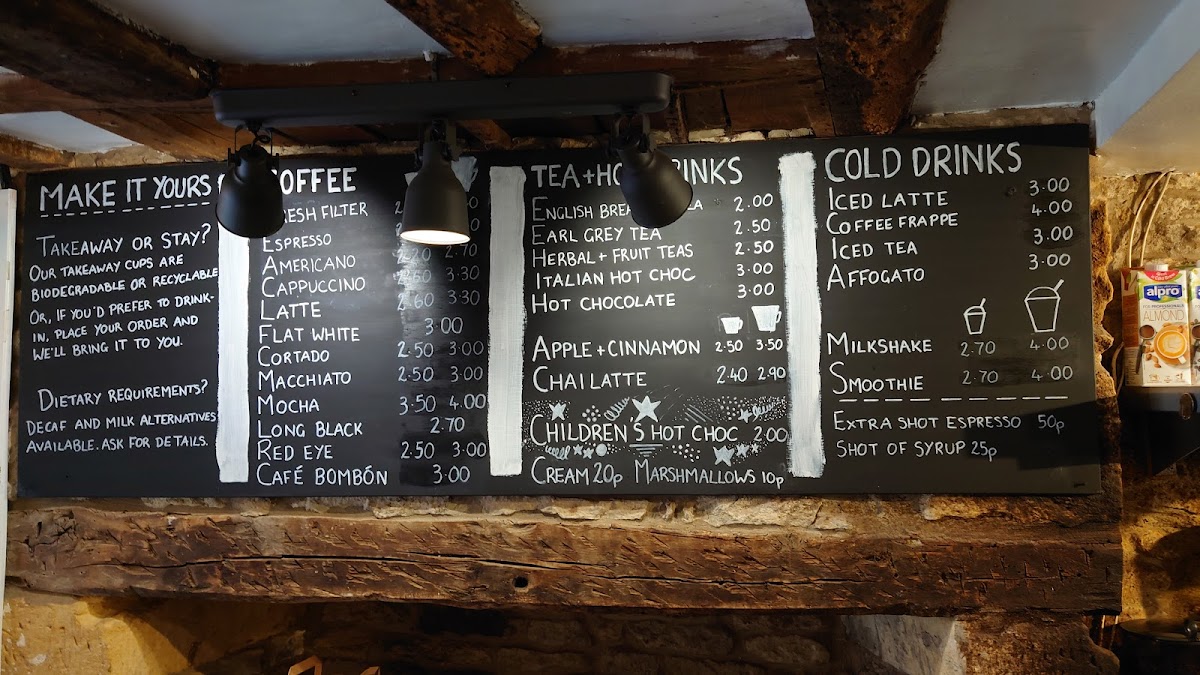 MAKE IT YOURS
TAKEAWAY OR STAY?
OUR TAKEAWAY CUPS ARE
BIODEGRADABLE OR RECYCLABLE
OR, IF YOU'D PREFER TO DRINK-
IN, PLACE YOUR ORDER AND
WE'LL BRING IT TO YOU.
DIETARY REQUIREMENTS?
DECAF AND MILK ALTERNATIVES
AVAILABLE. ASK FOR DETAILS.
COFFEE
FRESH FILTER
ESPRESSO
AMERICANO 2.20 2.70
CAPPUCCINO 2.60 3.30
LATTE 2.60 3.30
FLAT WHITE 3.00
CORTADO 2.50 3.00
MACCHIATO 2.50 3.00
MOCHA 3.50 4.00
LONG BLACK 2.70
RED EYE 2.50 3.00
CAFÉ BOMBÓN 3.00
TEA+HOT DRINKS
ENGLISH 2.00
EARL GREY TEA 2.50
HERBAL + FRUIT TEAS 2.50
ITALIAN HOT CHOC 3.00
HOT CHOCOLATE 3.00
APPLE + CINNAMON 2.50 3.50
CHAI LATTE 2.40 2.90
CHILDREN'S HOT CHOC 2.00
CREAM 20p MARSHMALLOWS 10p
COLD DRINKS
ICED LATTE 3.00
COFFEE FRAPPE 4.00
ICED TEA 3.00
AFFOGATO 3.00
MILKSHAKE 2.70 4.00
SMOOTHIE 2.70 4.00
EXTRA SHOT ESPRESSO 50p
SHOT OF SYRUP 25p
alpro
ALMOND